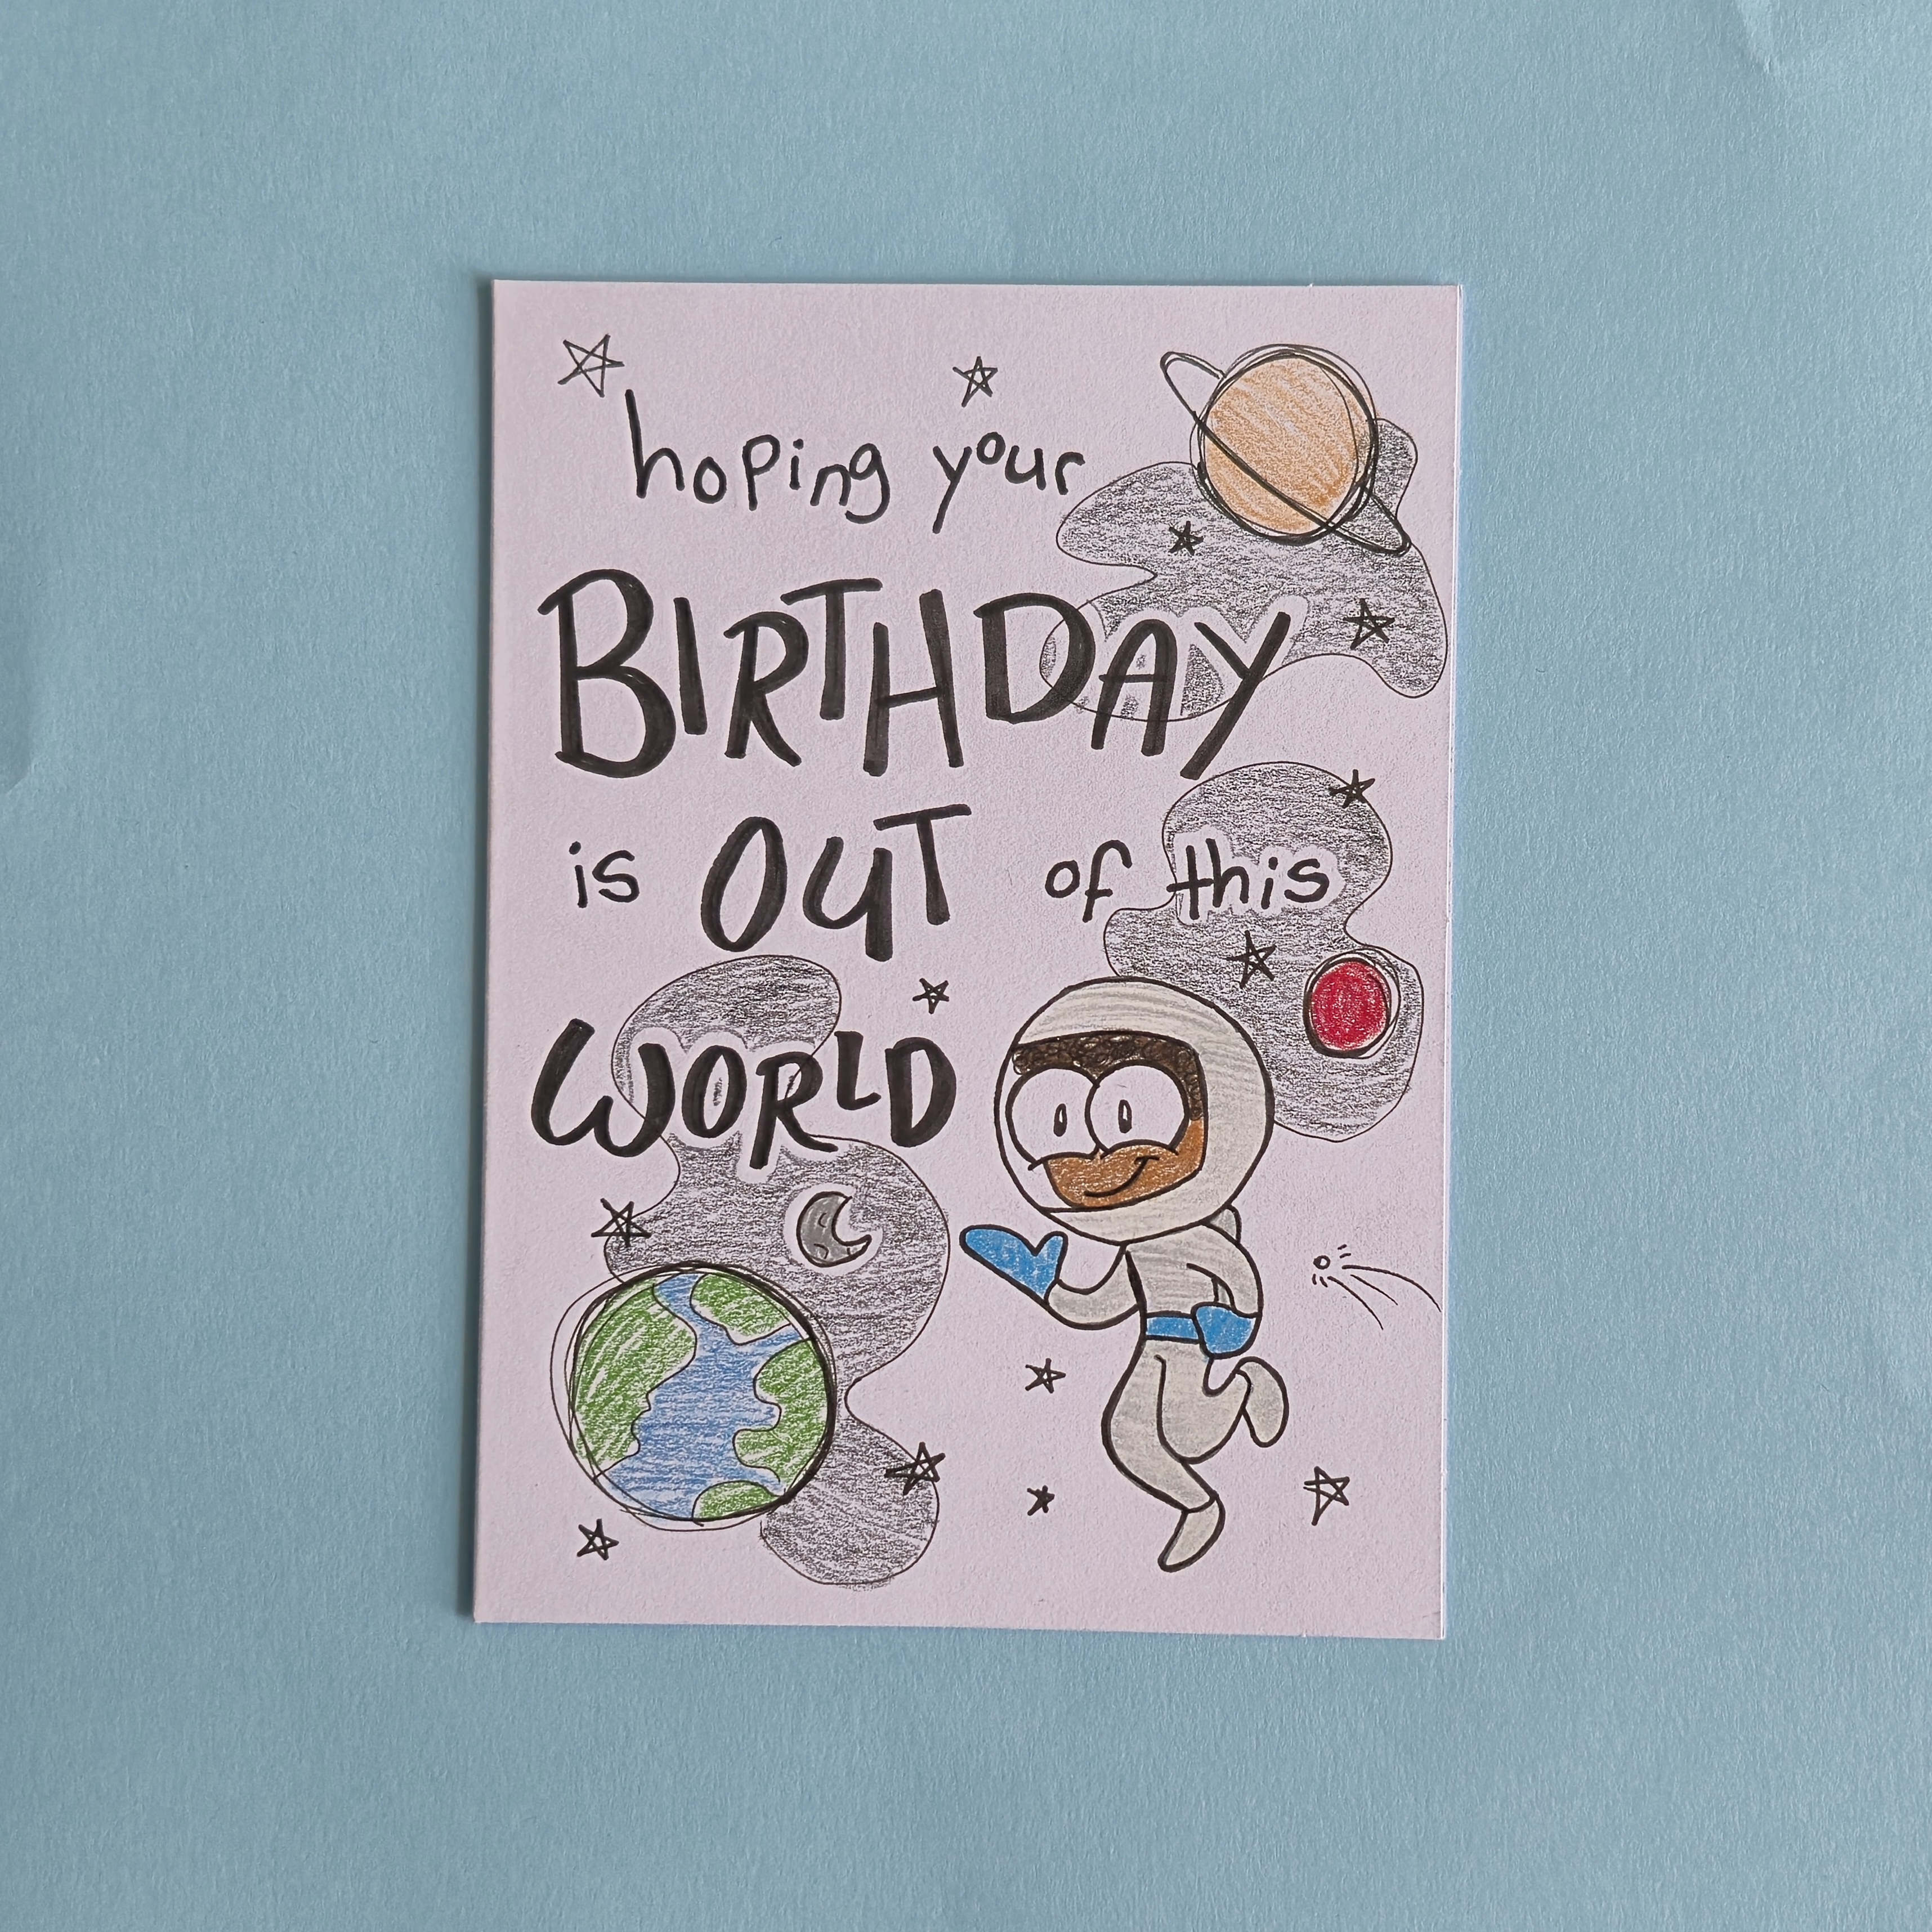 hoping your
BIRTHDAY
is OUT of this
WORLD